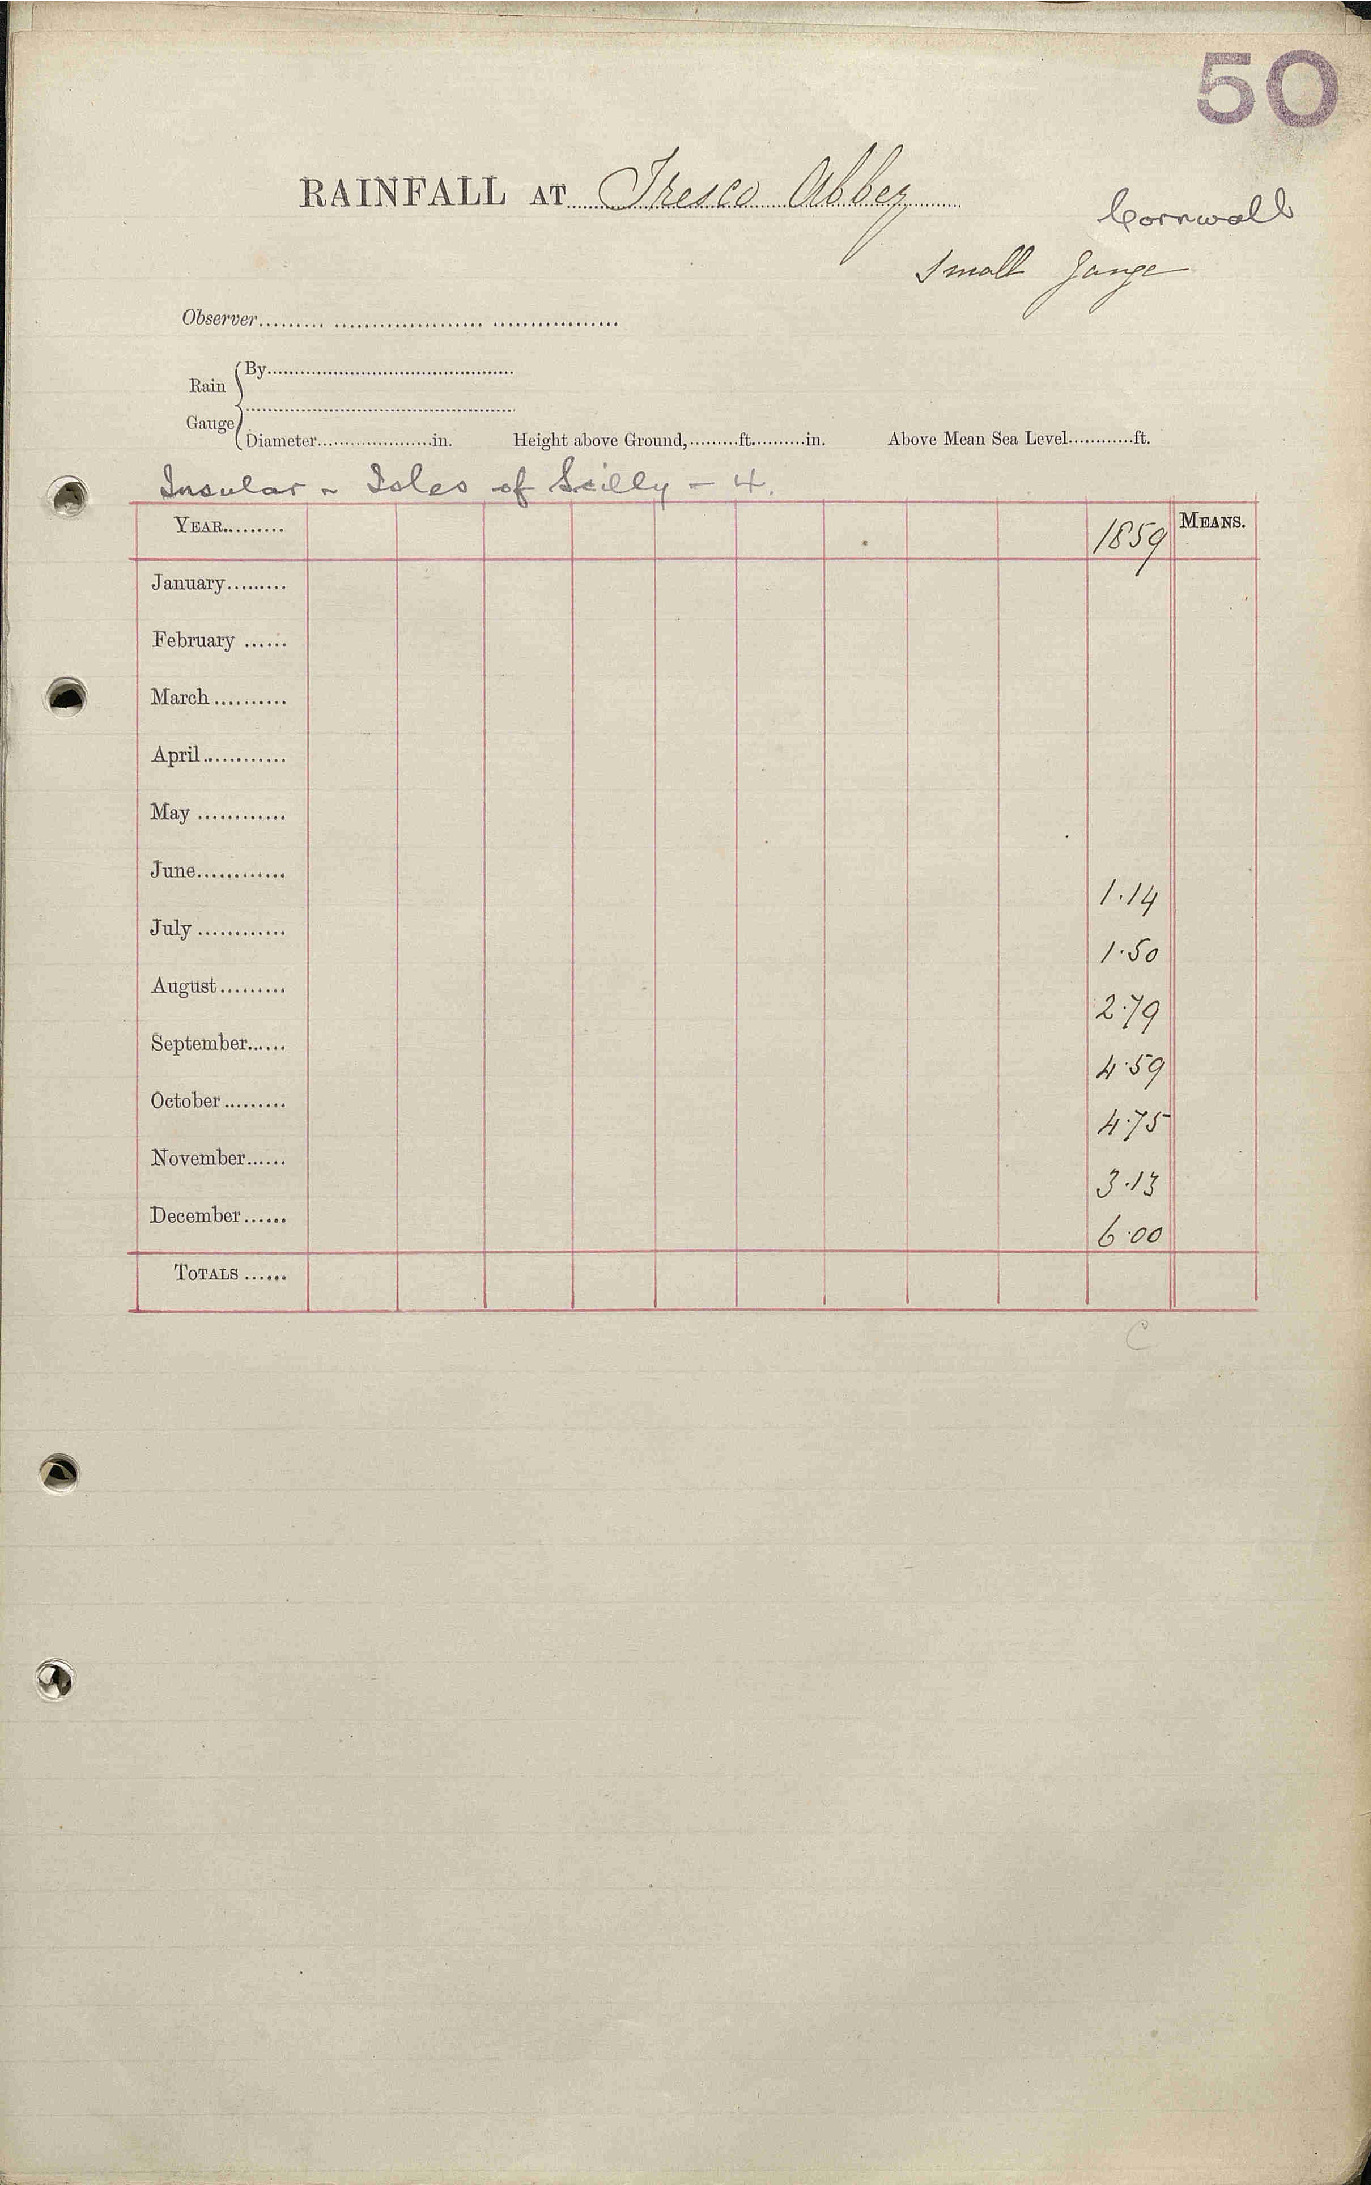 50
RAINFALL AT Tresco Abbey
Cornwall
Small Gauge
Observer
Rain Gauge
By
Diameter in. Height above Ground, ft. in. Above Mean Sea Level ft.
Insular - Isles of Scilly - 4.
YEAR 1859 MEANS.
January
February
March
April
May
June 1.14
July 1.50
August 2.79
September 4.59
October 4.75
November 3.13
December 6.00
TOTALS
C